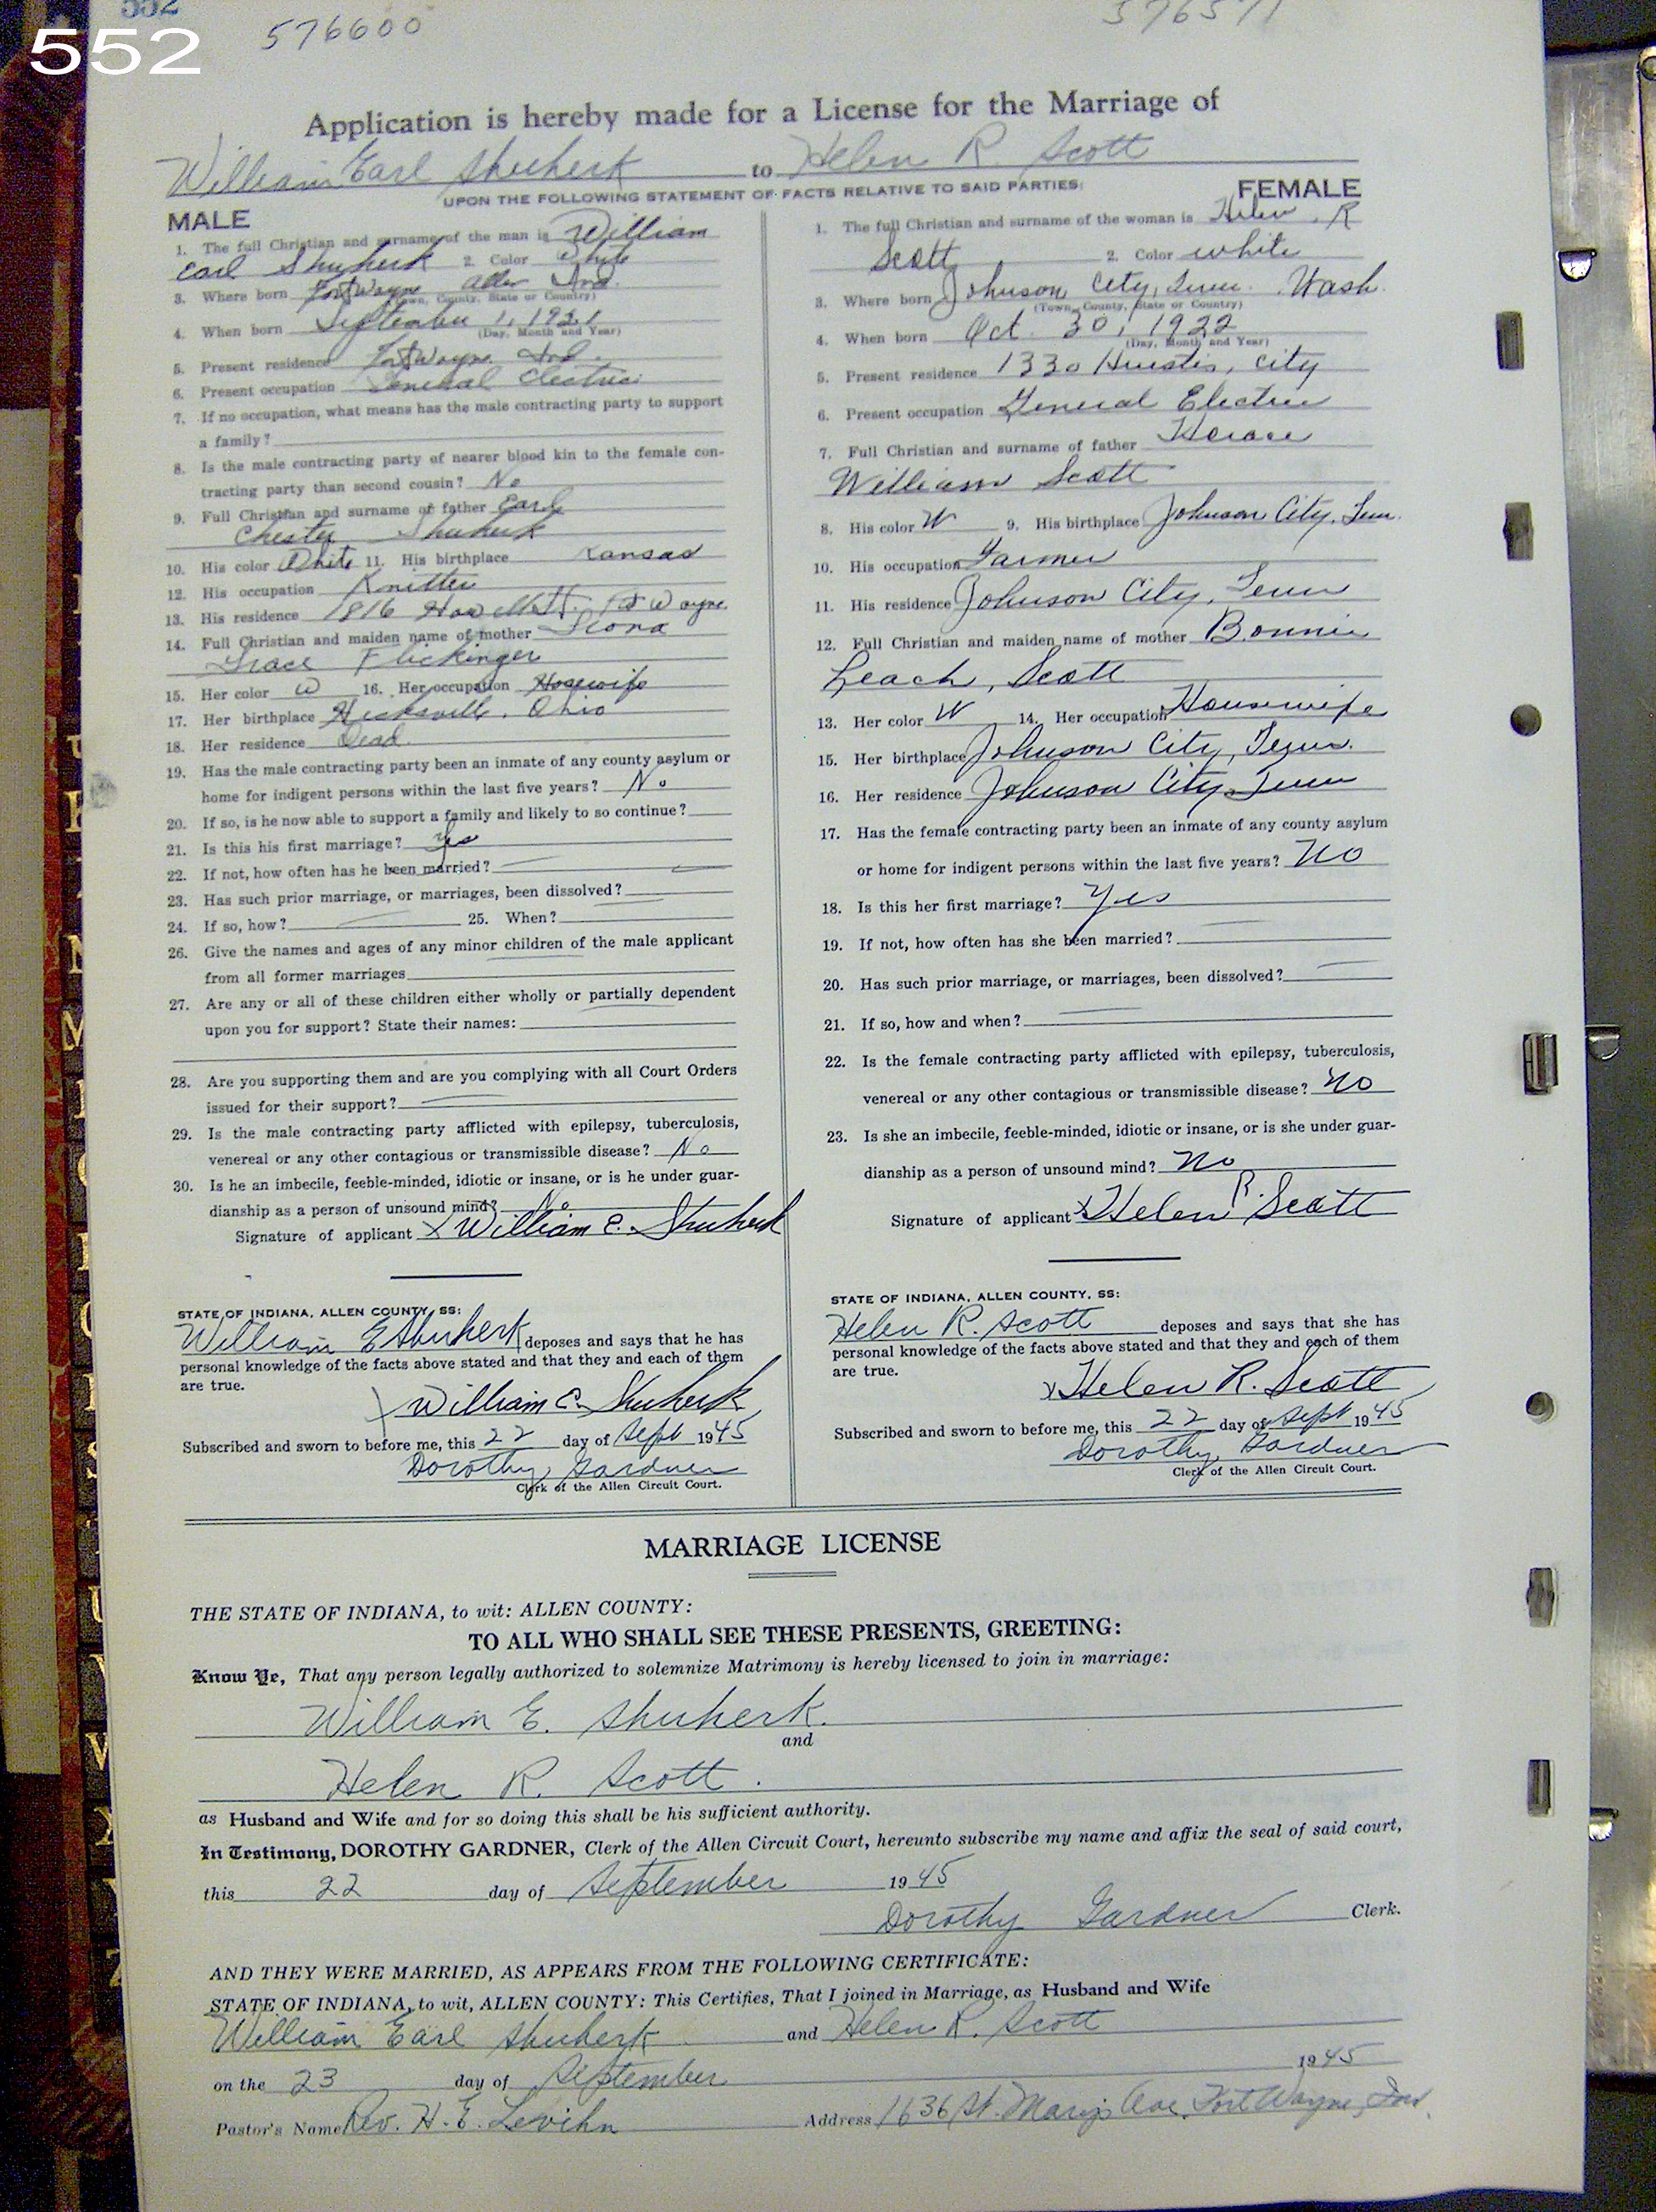 552
552
576600
576571
Application is hereby made for a License for the Marriage of
William Earl Shuherk to Helen R. Scott
UPON THE FOLLOWING STATEMENT OF FACTS RELATIVE TO SAID PARTIES:
MALE
1. The full Christian and surname of the man is William
Earl Shuherk 2. Color White
3. Where born Fort Wayne Allen Ind.
(Town, County, State or Country)
4. When born September 1, 1921
(Day, Month and Year)
5. Present residence Fort Wayne Ind.
6. Present occupation General Electric
7. If no occupation, what means has the male contracting party to support
a family?
8. Is the male contracting party of nearer blood kin to the female con-
tracting party than second cousin? No
9. Full Christian and surname of father Earl
Chester Shuherk
10. His color White 11. His birthplace Kansas
12. His occupation Knitter
13. His residence 1816 Ft Wayne
14. Full Christian and maiden name of mother Leona
Grace Flickinger
15. Her color W 16. Her occupation Hosewife
17. Her birthplace Hicksville, Ohio
18. Her residence Dead.
19. Has the male contracting party been an inmate of any county asylum or
home for indigent persons within the last five years? No
20. If so, is he now able to support a family and likely to so continue?
21. Is this his first marriage? Yes
22. If not, how often has he been married?
23. Has such prior marriage, or marriages, been dissolved?
24. If so, how? 25. When?
26. Give the names and ages of any minor children of the male applicant
from all former marriages
27. Are any or all of these children either wholly or partially dependent
upon you for support? State their names:
28. Are you supporting them and are you complying with all Court Orders
issued for their support?
29. Is the male contracting party afflicted with epilepsy, tuberculosis,
venereal or any other contagious or transmissible disease? No
30. Is he an imbecile, feeble-minded, idiotic or insane, or is he under guar-
dianship as a person of unsound mind? No
Signature of applicant x William E. Shuherk
STATE OF INDIANA, ALLEN COUNTY, SS:
William E Shuherk deposes and says that he has
personal knowledge of the facts above stated and that they and each of them
are true.
x William E. Shuherk
Subscribed and sworn to before me, this 22 day of Sept 1945
Dorothy Gardner
Clerk of the Allen Circuit Court.
FEMALE
1. The full Christian and surname of the woman is Helen, R
Scott 2. Color white
3. Where born Johnson City, Tenn. Wash.
(Town, County, State or Country)
4. When born Oct. 30, 1922
(Day, Month and Year)
5. Present residence 1330 Huestis, City
6. Present occupation General Electric
7. Full Christian and surname of father Horace
William Scott
8. His color W 9. His birthplace Johnson City, Tenn.
10. His occupation Farmer
11. His residence Johnson City, Tenn
12. Full Christian and maiden name of mother Bonnie
Leach, Scott
13. Her color W 14. Her occupation Housewife
15. Her birthplace Johnson City, Tenn.
16. Her residence Johnson City, Tenn
17. Has the female contracting party been an inmate of any county asylum
or home for indigent persons within the last five years? No
18. Is this her first marriage? Yes
19. If not, how often has she been married?
20. Has such prior marriage, or marriages, been dissolved?
21. If so, how and when?
22. Is the female contracting party afflicted with epilepsy, tuberculosis,
venereal or any other contagious or transmissible disease? No
23. Is she an imbecile, feeble-minded, idiotic or insane, or is she under guar-
dianship as a person of unsound mind? No
Signature of applicant x Helen R. Scott
STATE OF INDIANA, ALLEN COUNTY, SS:
Helen R. Scott deposes and says that she has
personal knowledge of the facts above stated and that they and each of them
are true.
x Helen R. Scott
Subscribed and sworn to before me, this 22 day of Sept 1945
Dorothy Gardner
Clerk of the Allen Circuit Court.
MARRIAGE LICENSE
THE STATE OF INDIANA, to wit: ALLEN COUNTY:
TO ALL WHO SHALL SEE THESE PRESENTS, GREETING:
Know Ye, That any person legally authorized to solemnize Matrimony is hereby licensed to join in marriage:
William E. Shuherk.
and
Helen R. Scott.
as Husband and Wife and for so doing this shall be his sufficient authority.
In Testimony, DOROTHY GARDNER, Clerk of the Allen Circuit Court, hereunto subscribe my name and affix the seal of said court,
this 22 day of September 1945
Dorothy Gardner Clerk.
AND THEY WERE MARRIED, AS APPEARS FROM THE FOLLOWING CERTIFICATE:
STATE OF INDIANA, to wit, ALLEN COUNTY: This Certifies, That I joined in Marriage, as Husband and Wife
William Earl Shuherk and Helen R. Scott
on the 23 day of September 1945
Pastor's Name Rev. H. E. Levihn Address 1636 St. Marys Ave. Fort Wayne, Ind.